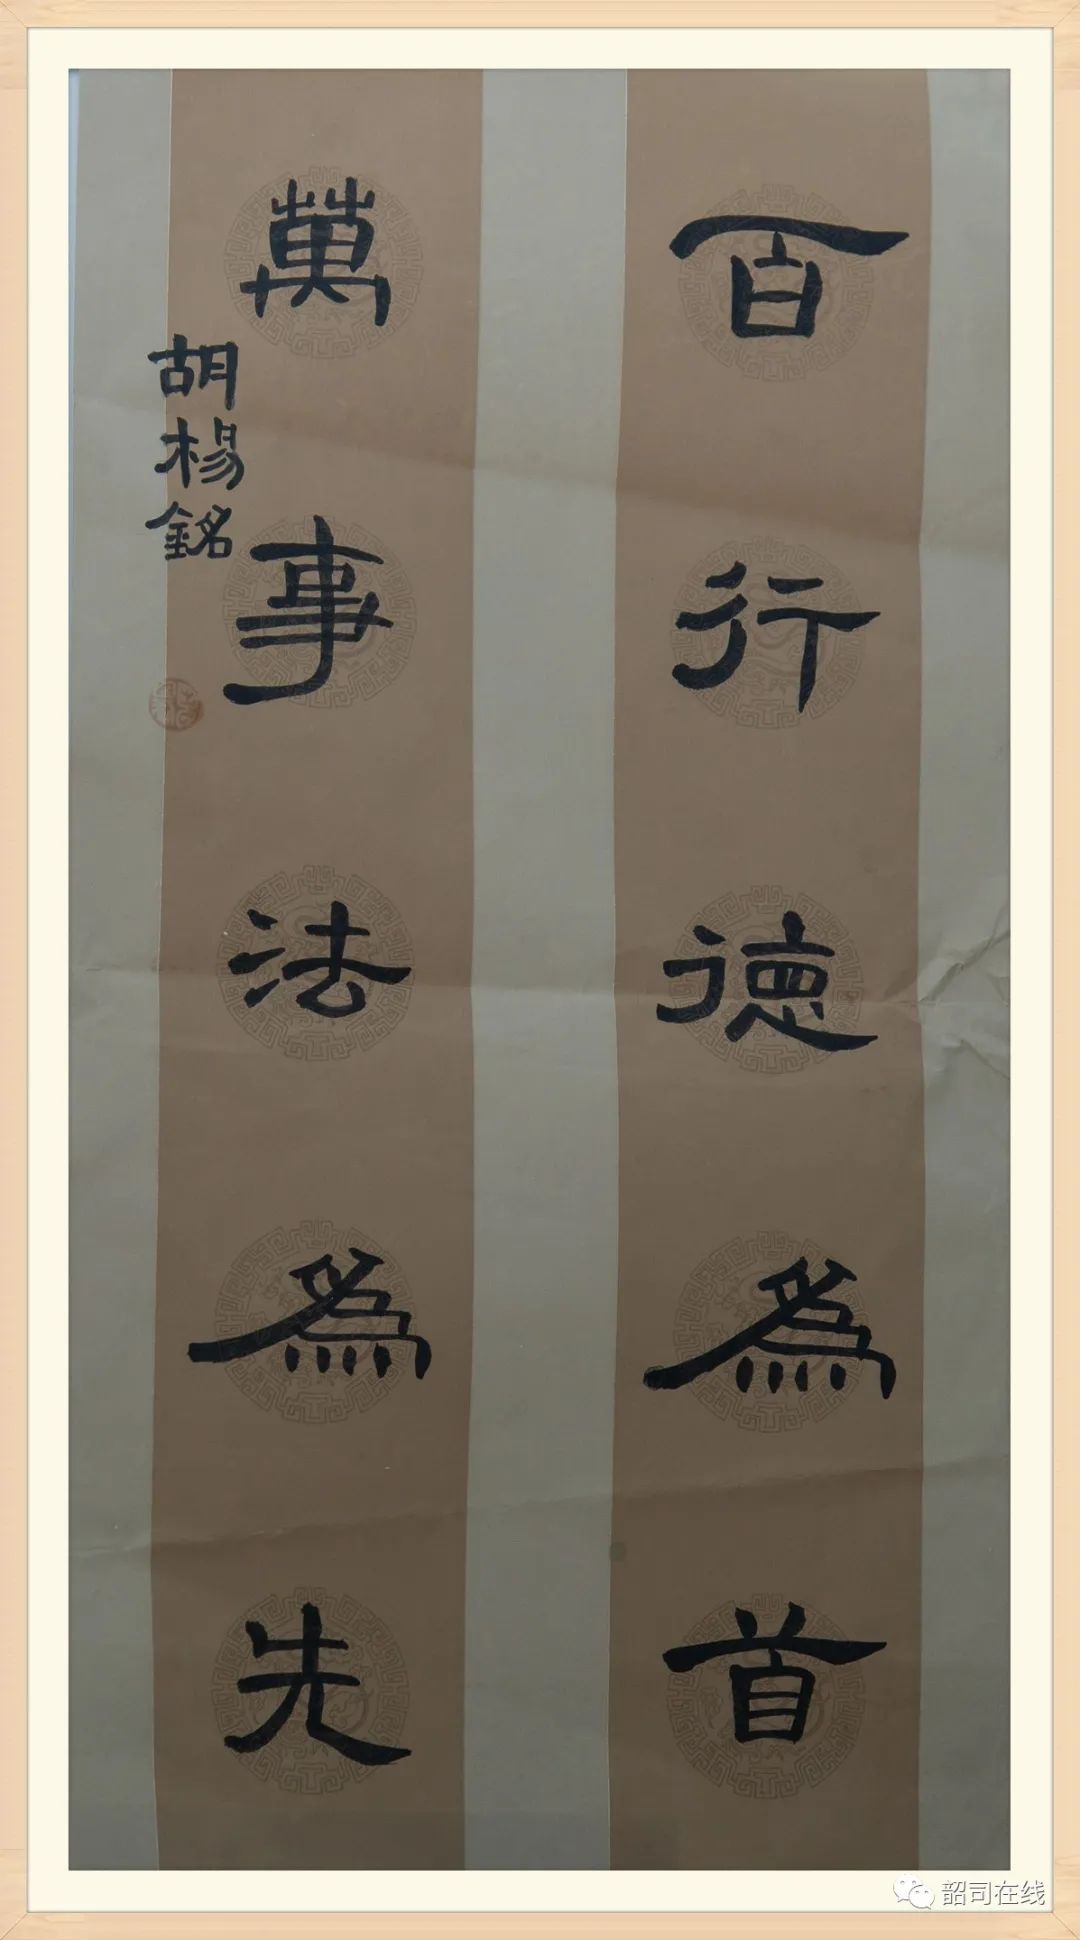 百行德為首
萬事法為先
胡楊銘
韶司在线